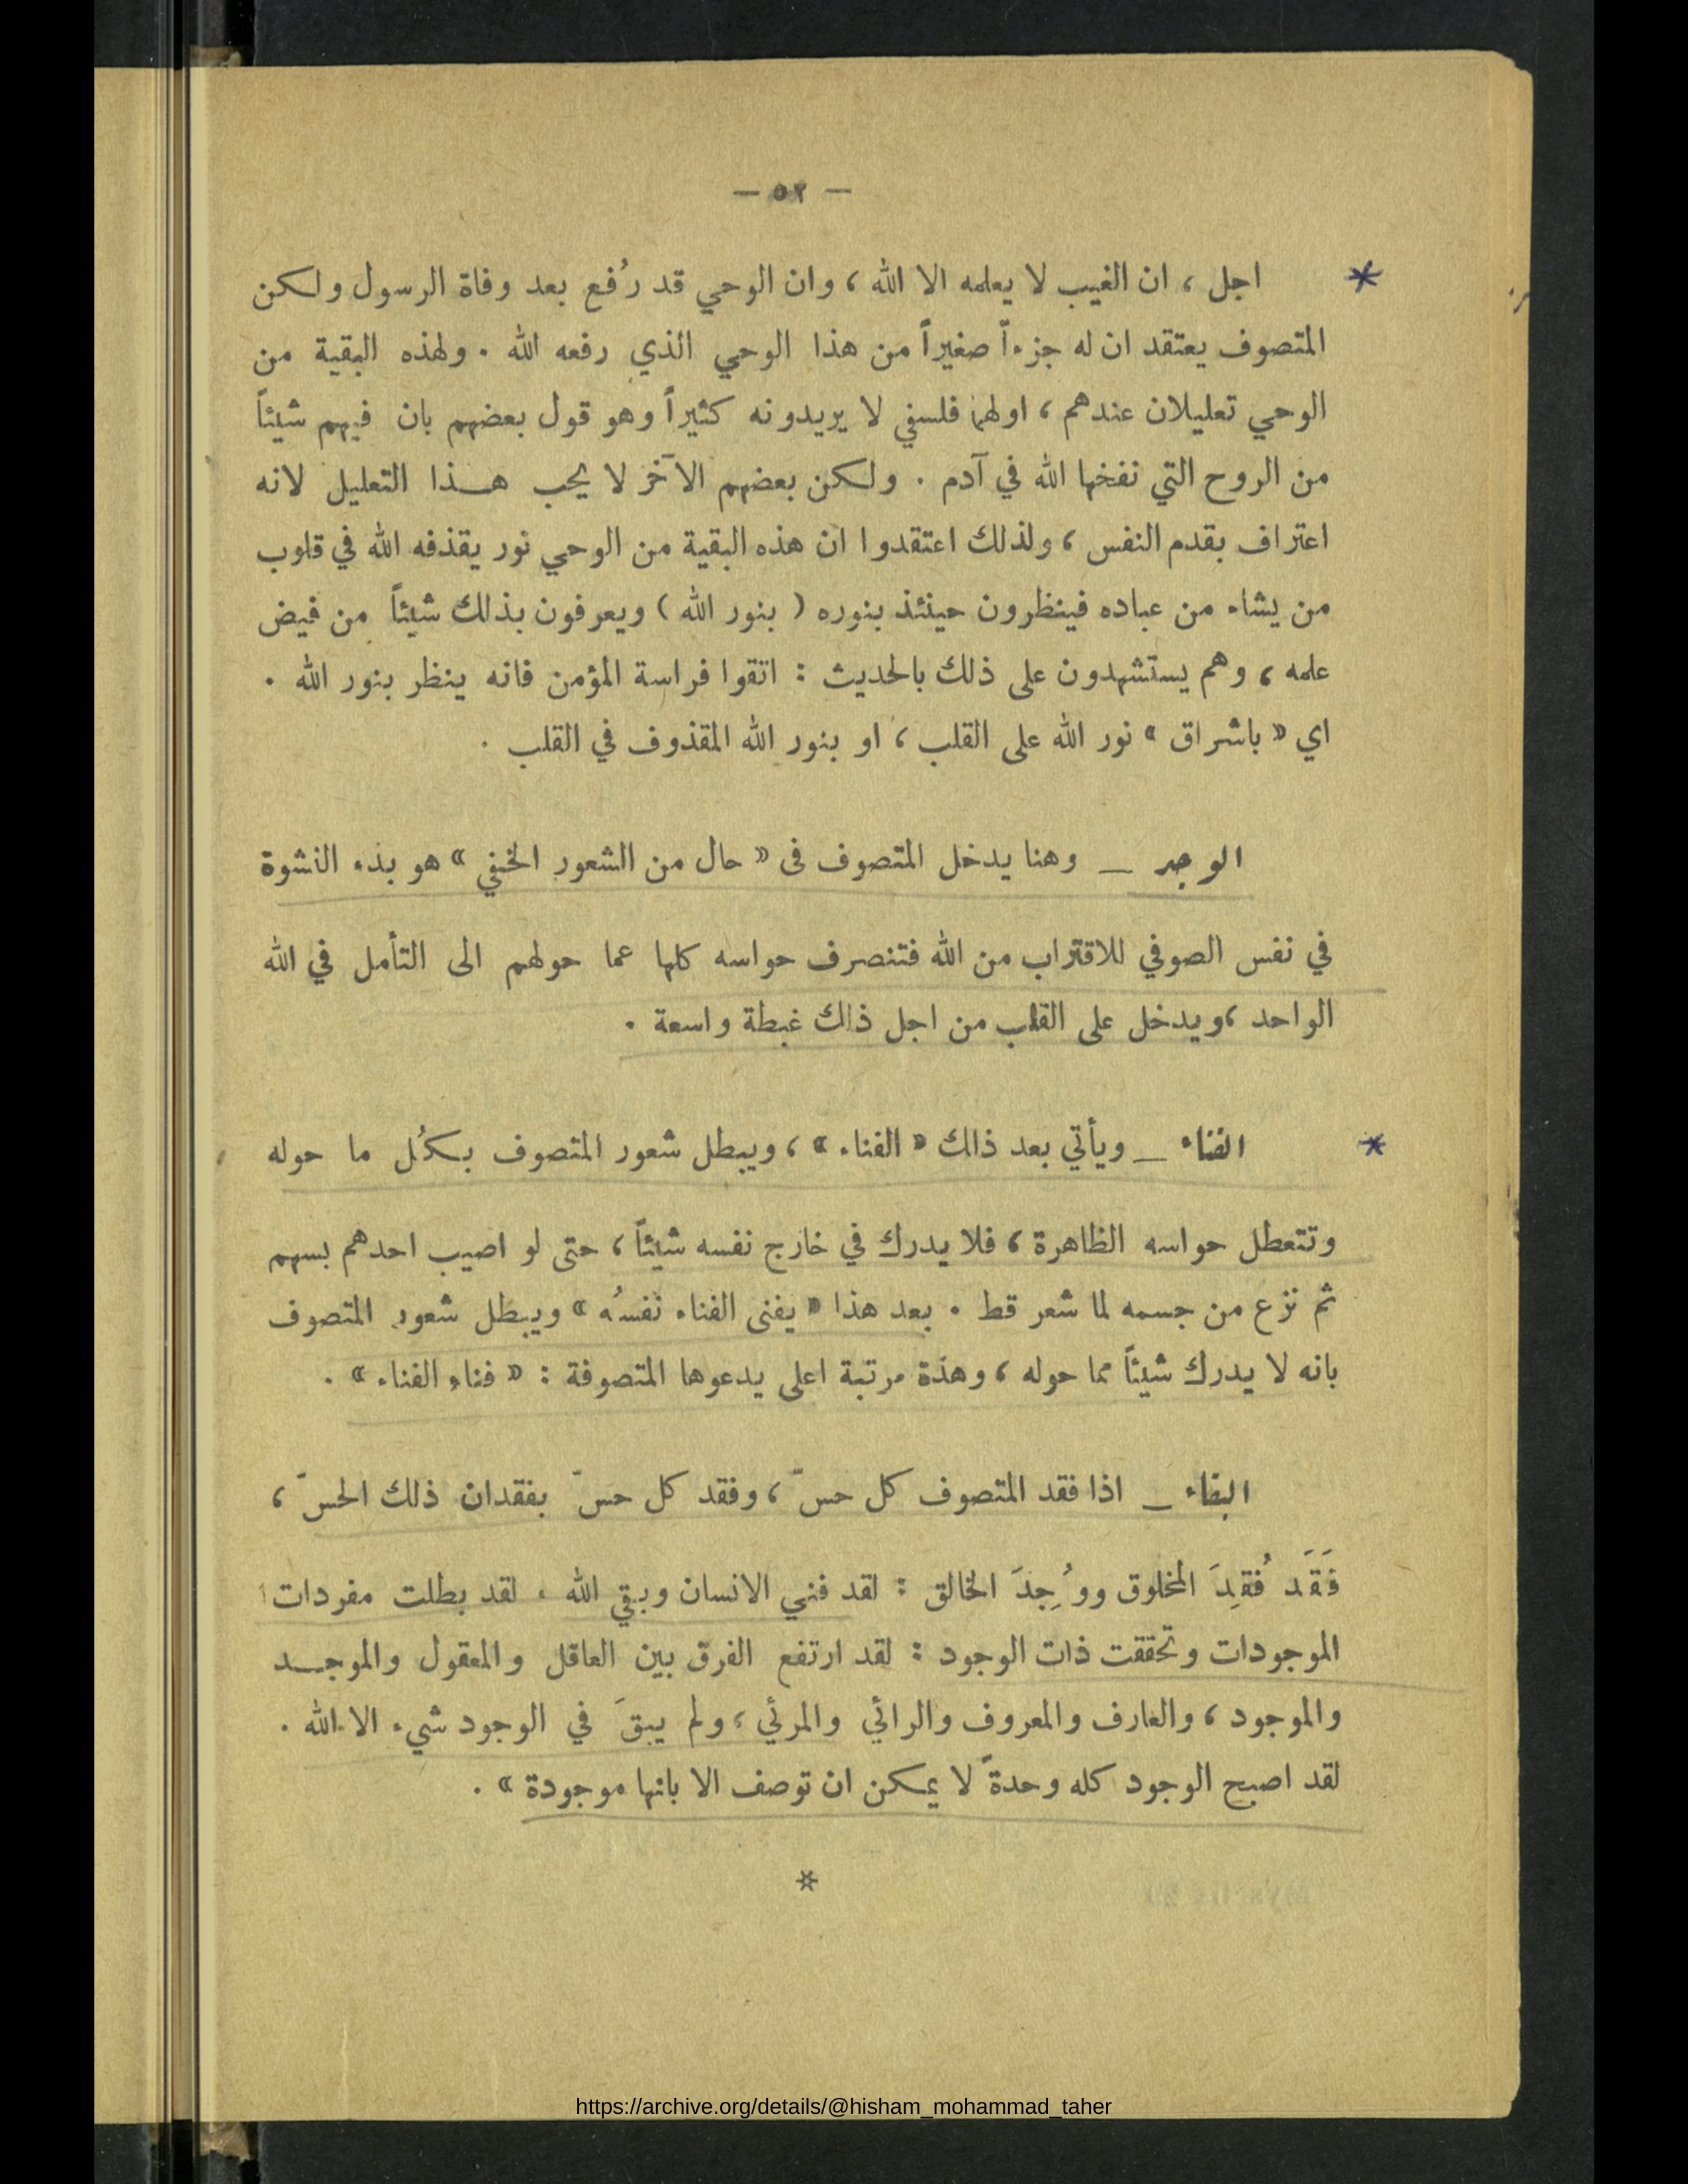 — ٥٢ —
اجل ، ان الغيب لا يعلمه الا الله ، وان الوحي قد رُفع بعد وفاة الرسول ولكن
المتصوف يعتقد ان له جزءاً صغيراً من هذا الوحي الذي رفعه الله . ولهذه البقية من
الوحي تعليلان عندهم ، اولهما فلسفي لا يريدونه كثيراً وهو قول بعضهم بان فيهم شيئاً
من الروح التي نفخها الله في آدم . ولكن بعضهم الآخر لا يحب هذا التعليل لانه
اعتراف بقدم النفس ، ولذلك اعتقدوا ان هذه البقية من الوحي نور يقذفه الله في قلوب
من يشاء من عباده فينظرون حينئذ بنوره ( بنور الله ) ويعرفون بذلك شيئاً من فيض
علمه ، وهم يستشهدون على ذلك بالحديث : اتقوا فراسة المؤمن فانه ينظر بنور الله .
اي « باشراق » نور الله على القلب ، او بنور الله المقذوف في القلب .
الوجد _ وهنا يدخل المتصوف فى « حال من الشعور الخفي » هو بدء النشوة
في نفس الصوفي للاقتراب من الله فتنصرف حواسه كلها عما حولهم الى التأمل في الله
الواحد ، ويدخل على القلب من اجل ذلك غبطة واسعة .
الفناء _ ويأتي بعد ذلك « الفناء » ، ويبطل شعور المتصوف بكُل ما حوله
وتتعطل حواسه الظاهرة ، فلا يدرك في خارج نفسه شيئاً ، حتى لو اصيب احدهم بسهم
ثم نزع من جسمه لما شعر قط . بعد هذا « يفنى الفناء نفسُه » ويبطل شعور المتصوف
بانه لا يدرك شيئاً مما حوله ، وهذه مرتبة اعلى يدعوها المتصوفة : « فناء الفناء » .
البقاء _ اذا فقد المتصوف كل حسّ ، وفقد كل حسّ بفقدان ذلك الحسّ ،
فَقَد فُقِدَ المخلوق ووُجِدَ الخالق : لقد فني الانسان وبقي الله . لقد بطلت مفردات
الموجودات وتحققت ذات الوجود : لقد ارتفع الفرق بين العاقل والمعقول والموجد
والموجود ، والعارف والمعروف والرائي والمرئي ، ولم يبقَ في الوجود شيء الا الله .
لقد اصبح الوجود كله وحدةً لا يمكن ان توصف الا بانها موجودة » .
*
https://archive.org/details/@hisham_mohammad_taher